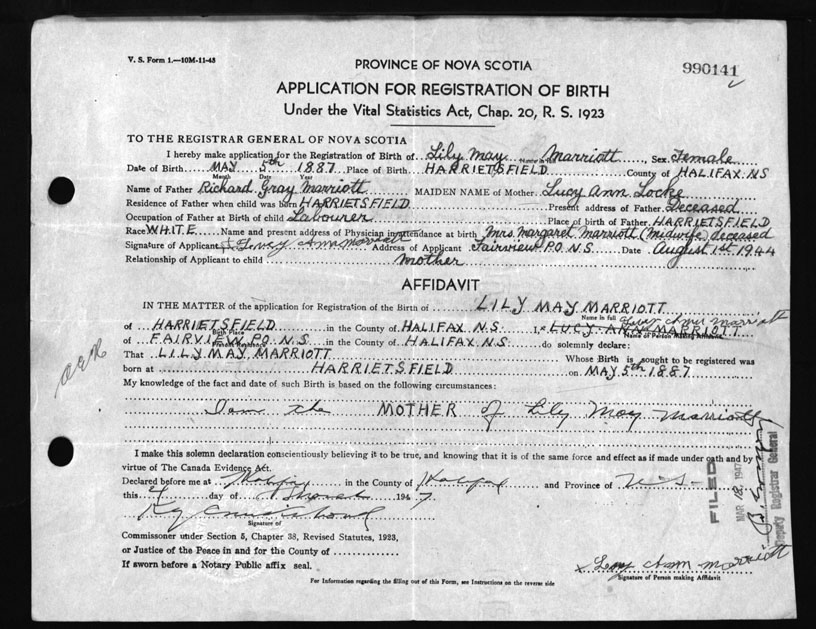 V. S. Form 1.—10M-11-43
990141
PROVINCE OF NOVA SCOTIA
APPLICATION FOR REGISTRATION OF BIRTH
Under the Vital Statistics Act, Chap. 20, R. S. 1923
TO THE REGISTRAR GENERAL OF NOVA SCOTIA
I hereby make application for the Registration of Birth of Lily May Marriott, Sex Female
Name in full
Date of Birth MAY 5th 1887 Place of Birth HARRIETSFIELD County of HALIFAX. N.S
Month Date Year
Name of Father Richard Gray Marriott MAIDEN NAME of Mother Lucy Ann Locke
Residence of Father when child was born HARRIETSFIELD Present address of Father Deceased
Occupation of Father at Birth of child Labourer Place of birth of Father HARRIETSFIELD
Race WHITE Name and present address of Physician in attendance at birth Mrs. Margaret Marriott (Midwife) deceased
Signature of Applicant Lucy Ann Marriott Address of Applicant Fairview P.O. N.S. Date August 1st 1944
Relationship of Applicant to child mother
AFFIDAVIT
IN THE MATTER of the application for Registration of the Birth of LILY MAY MARRIOTT
Name in full
Lucy Ann Marriott
of HARRIETSFIELD in the County of HALIFAX N.S. I, LUCY ANN MARRIOTT
Birth Place Name of Person Making Affidavit
of FAIRVIEW P.O. N.S. in the County of HALIFAX. N.S. do solemnly declare:
Present Residence
That LILY MAY MARRIOTT Whose Birth is sought to be registered was
born at HARRIETSFIELD on MAY 5th 1887
My knowledge of the fact and date of such Birth is based on the following circumstances:
I am the MOTHER of Lily May Marriott
I make this solemn declaration conscientiously believing it to be true, and knowing that it is of the same force and effect as if made under oath and by
virtue of The Canada Evidence Act.
Declared before me at Halifax in the County of Halifax and Province of N.S.
this day of March 1947
Signature of
Commissioner under Section 5, Chapter 38, Revised Statutes, 1923,
or Justice of the Peace in and for the County of
If sworn before a Notary Public affix seal.
x Lucy Ann Marriott
Signature of Person making Affidavit
For Information regarding the filling out of this Form, see Instructions on the reverse side
FILED
MAR 12 1947
Deputy Registrar General